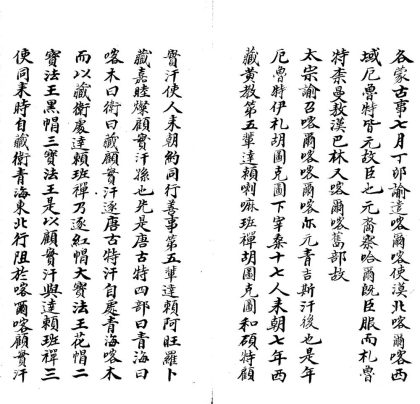 各蒙古事七月丁卯諭達喀爾喀使漠北喀爾喀西
域厄魯特胥元故臣也元裔察哈爾旣臣服而札魯
特柰曼敖漢巴林又喀爾喀舊部故
太宗諭召喀爾喀喀爾喀亦元青吉斯汗後也是年
厄魯特伊札胡圖克圖下宰桑十七人來朝七年西
藏黃教第五輩達賴喇嘛班禪胡圖克圖和碩特顧
實汗使人來朝約同行善事第五輩達賴阿旺羅卜
藏嘉睦燦顧實汗孫也先是唐古特四部曰青海曰
喀木曰衛曰藏顧實汗逐唐古特汗自處青海喀木
而以藏衛處達賴班禪乃逐紅帽大寶法王花帽二
寶法王黑帽三寶法王是以顧實汗與達賴班禪三
使同來時自藏衛青海東北行阻於喀爾喀顧實汗